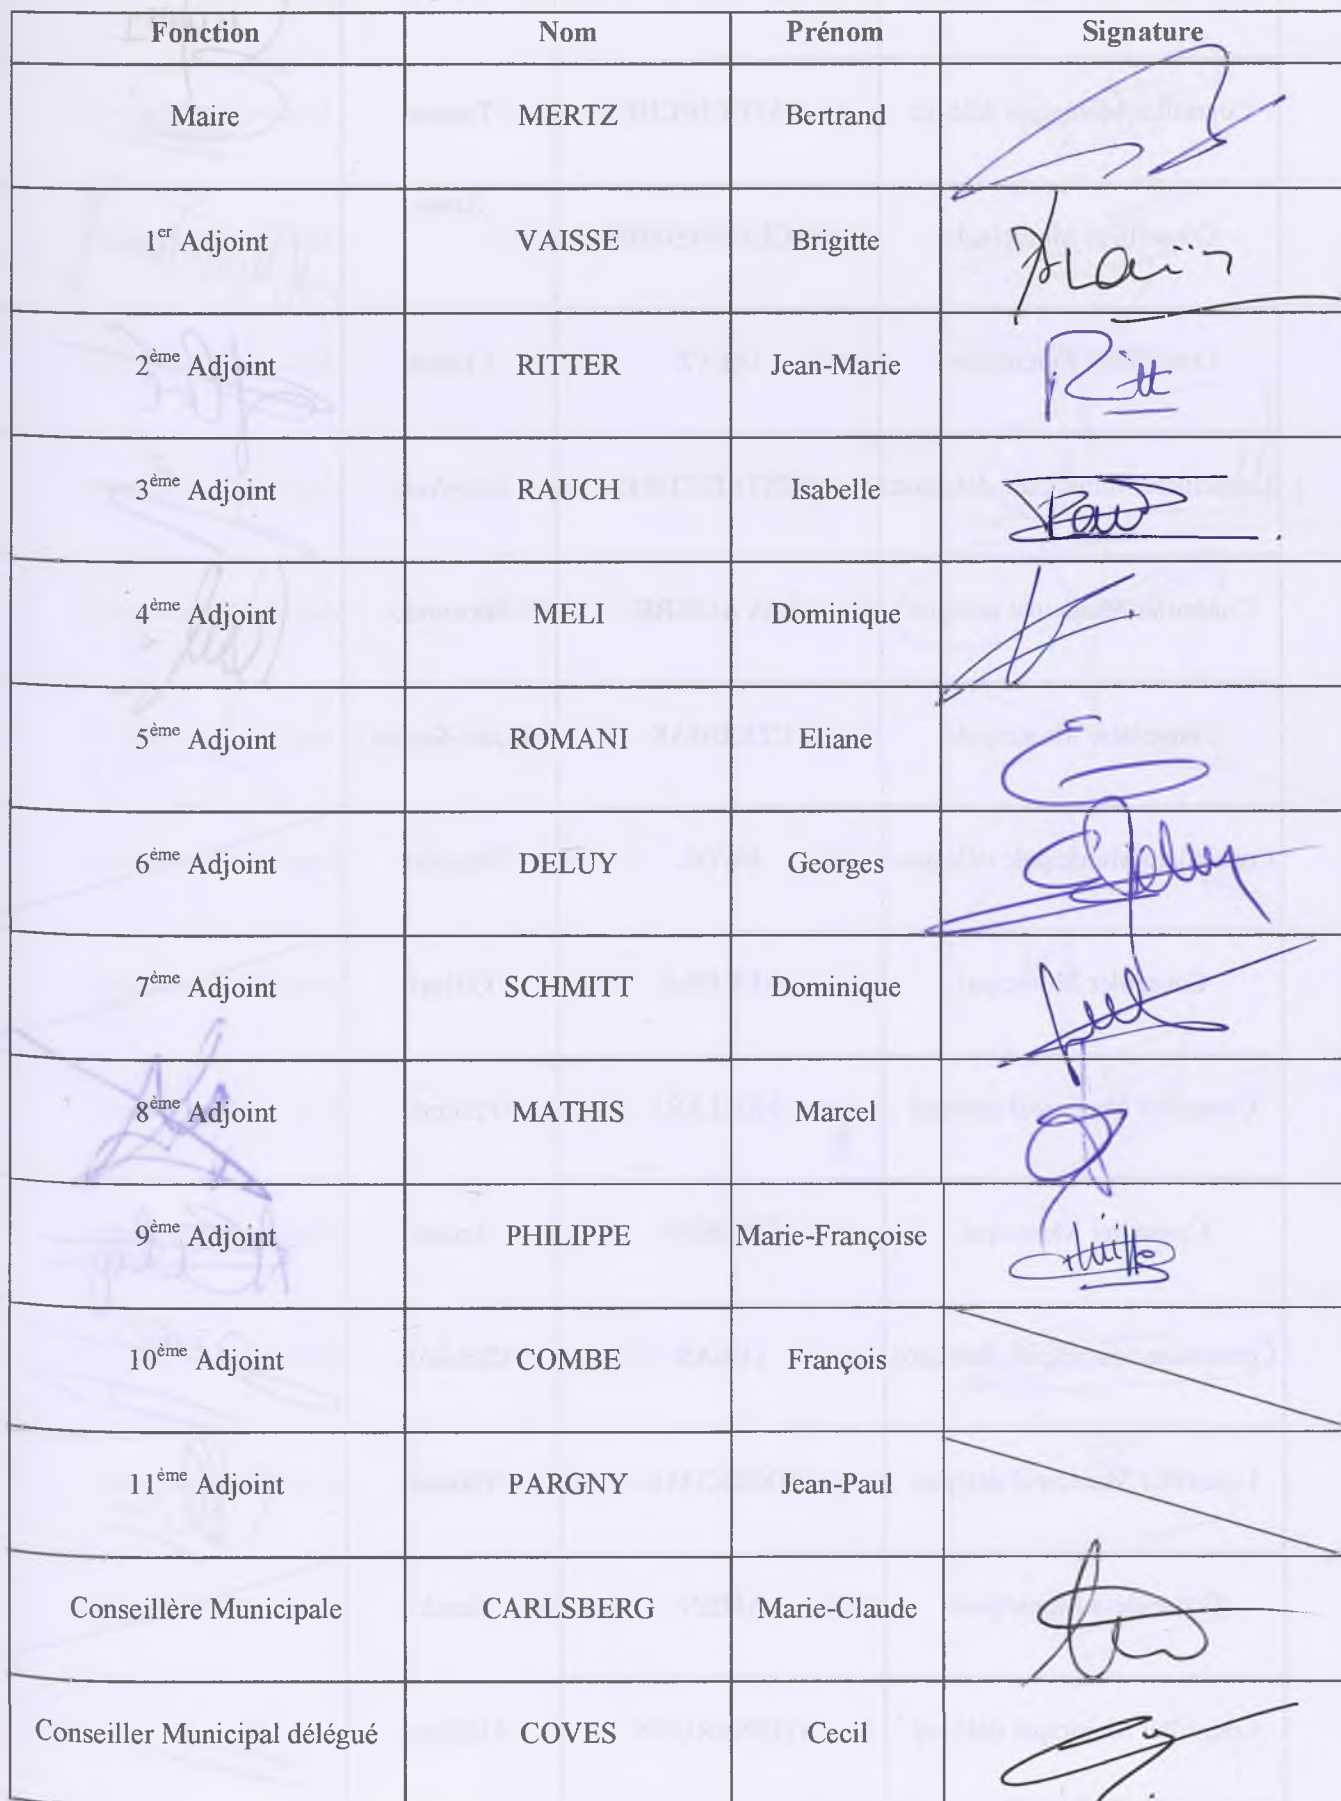 Fonction Nom Prénom Signature
Maire MERTZ Bertrand
1er Adjoint VAISSE Brigitte
2ème Adjoint RITTER Jean-Marie Ritt
3ème Adjoint RAUCH Isabelle
4ème Adjoint MELI Dominique
5ème Adjoint ROMANI Eliane
6ème Adjoint DELUY Georges
7ème Adjoint SCHMITT Dominique
8ème Adjoint MATHIS Marcel
9ème Adjoint PHILIPPE Marie-Françoise
10ème Adjoint COMBE François
11ème Adjoint PARGNY Jean-Paul
Conseillère Municipale CARLSBERG Marie-Claude
Conseiller Municipal délégué COVES Cecil